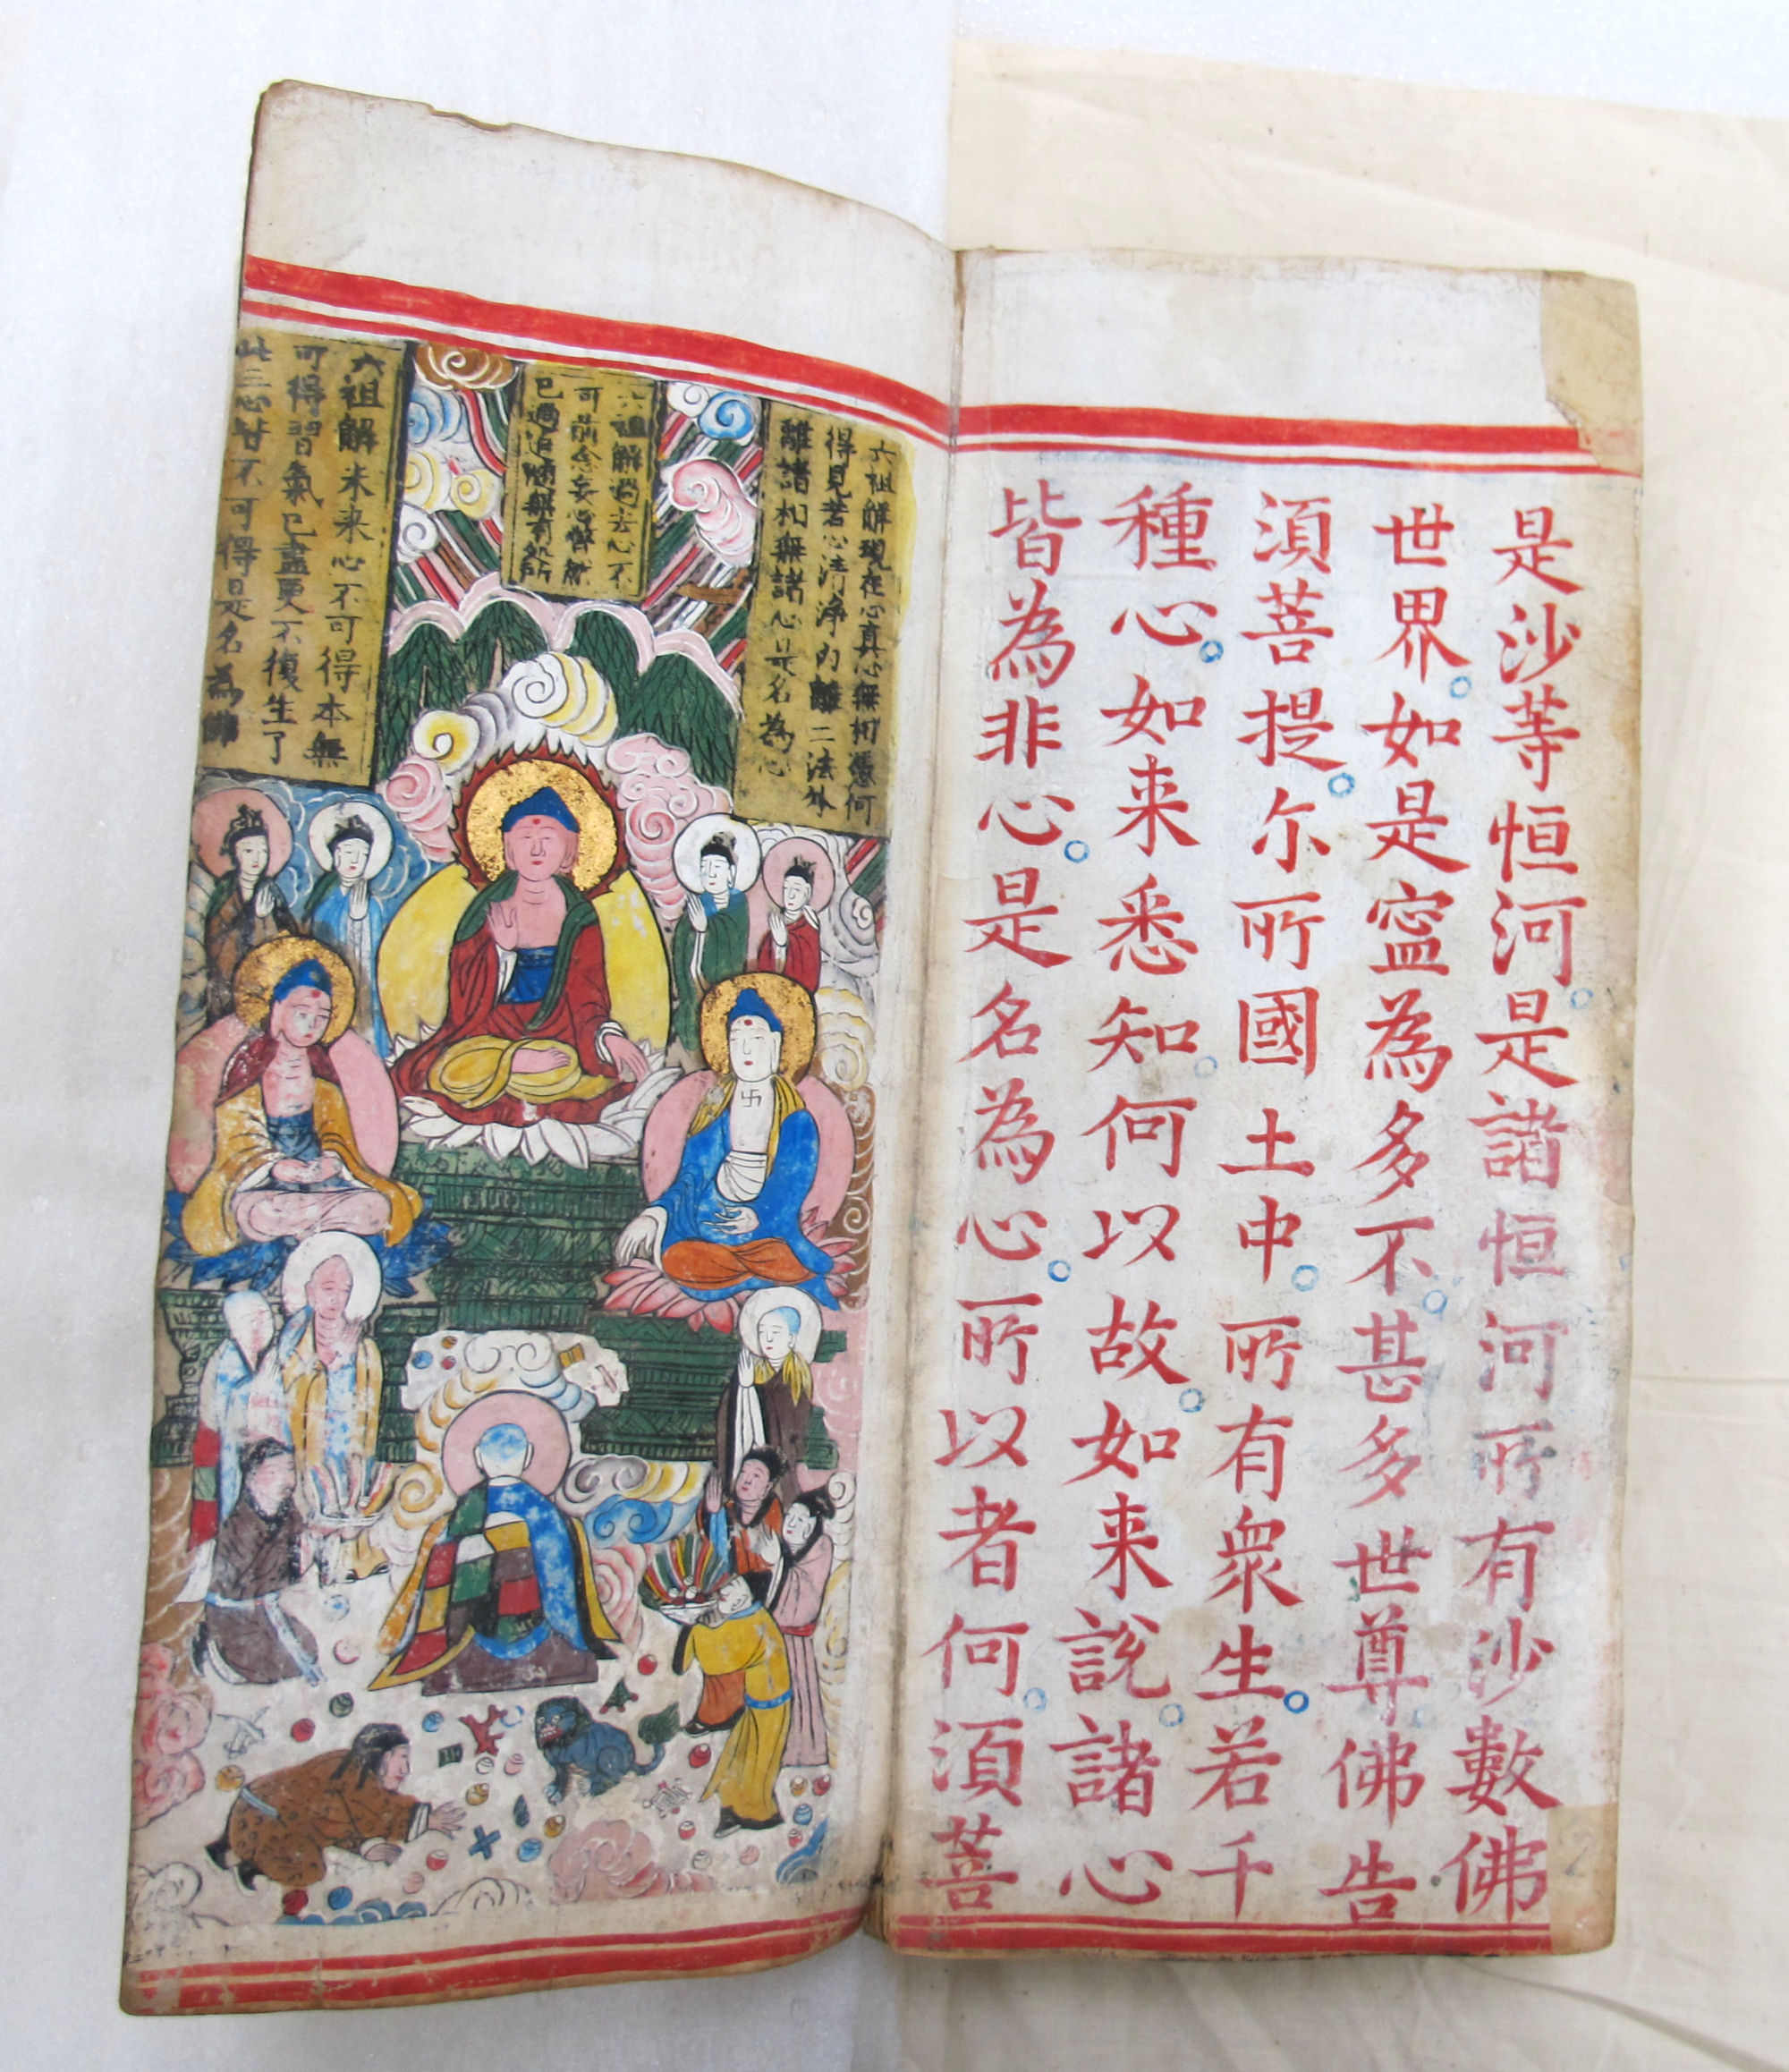 是沙等恒河。是諸恒河所有沙數佛
世界。如是寍為多不。甚多世尊。佛告
須菩提。尓所國土中。所有衆生。若千
種心。如来悉知。何以故。如来說。諸心
皆為非心。是名為心。所以者何。須菩
六祖解現在心真心無相憑何
得見若心清淨内離二法外
離諸相無諸心是名為心
六祖解過去心不
可前念妄心瞥然
已過追無有処所
六祖解未来心不可得本無
可得習氣已盡更不復生了
此三心甘不可得是名為佛